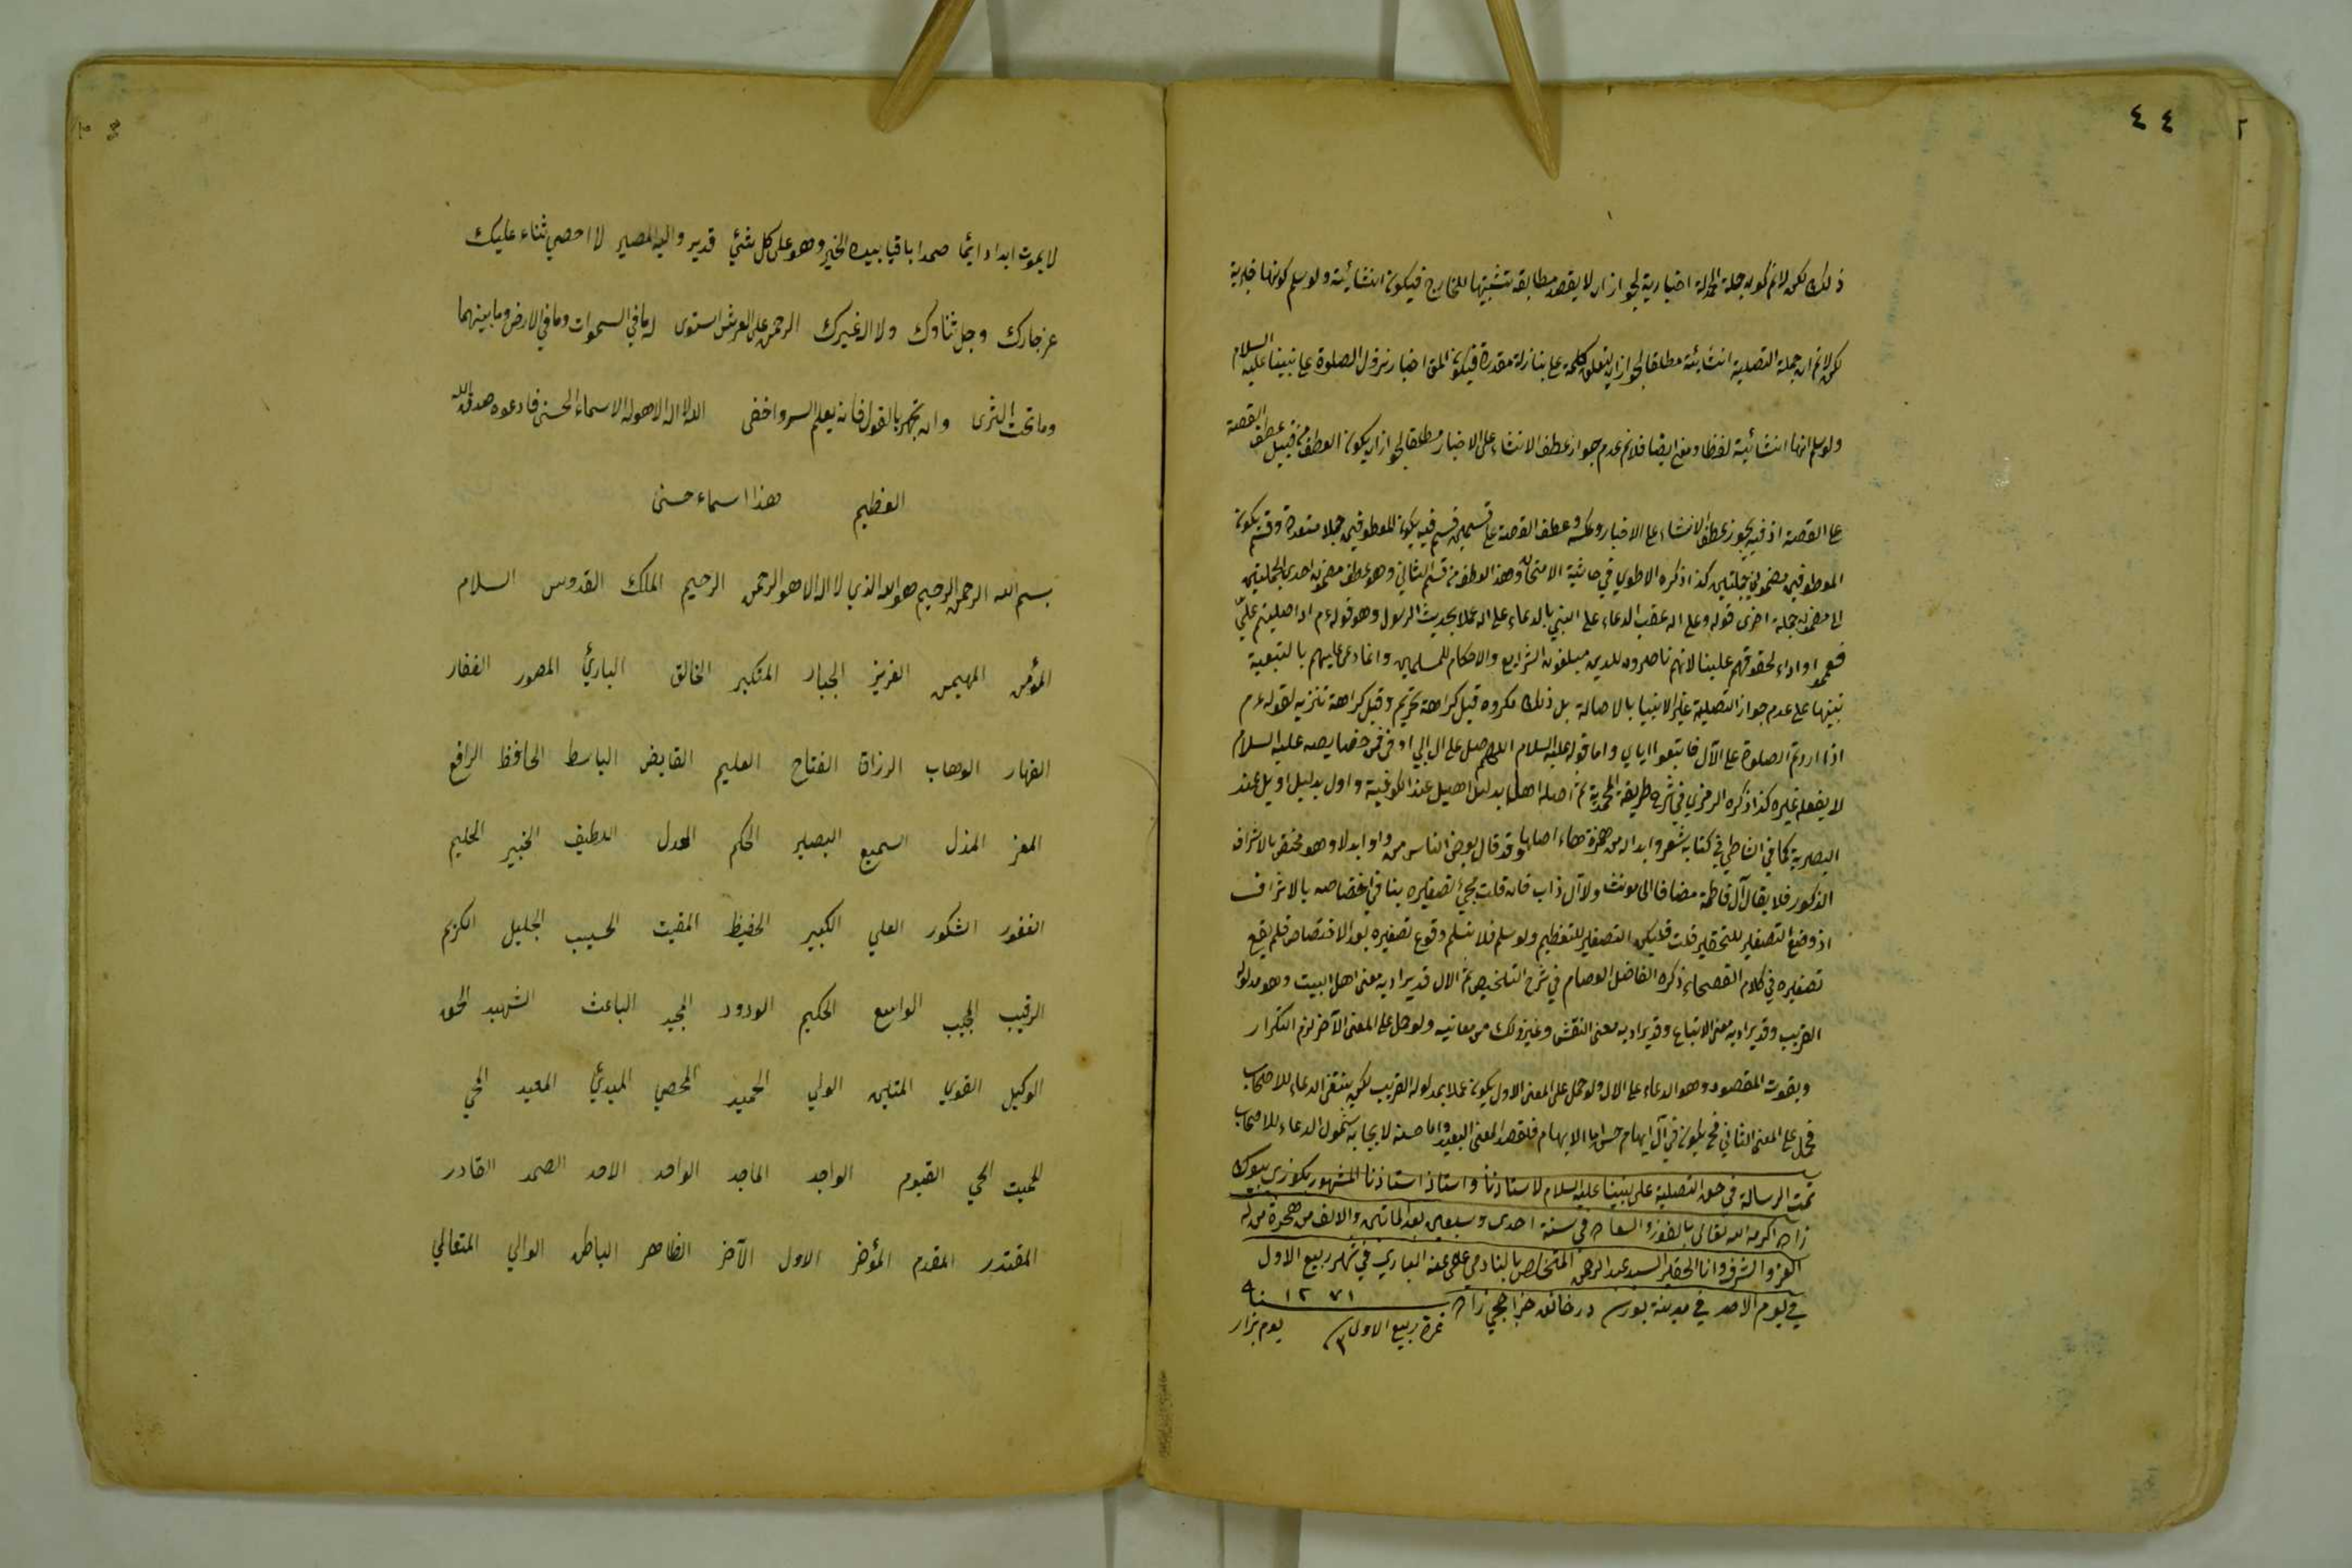 ٤٤
٢
ذلك لكن لانم كون جملة الحمدلة اخبارية لجواز ان لا يقصد مطابقة نسبتها للخارج فيكون انشائية ولو سلم كونها خبرية
لكن لانم ان جملة التصلية انشائية مطلقا لجواز ان يتعلق كلمة على بنازلة مقدرة فيكون المق اخبار نزول الصلوة على نبينا عليه السلام
ولو سلم انها انشائية لفظا ومعنى ايضا فلانم عدم جواز عطف الانشاء على الاخبار مطلقا لجواز ان يكون العطف من قبيل عطف القصة
على القصة اذ فيه يجوز عطف الانشاء على الاخبار وعكسه وعطف القصة على قسمين قسم فيه يكون المعطوفين جملا متعددة وقسم يكون
المعطوفين مضموني جملتين كذا ذكره الاطوي في حاشية الامتحان وهذا العطف من قسم الثاني وهو عطف مضمون احدى الجملتين
الى مضمون جملة اخرى قوله وعلى اله عقب الدعاء على النبي بالدعاء على اله عملا بحديث الرسول وهو قوله ءم اذا صليتم عليّ
فعمموا واداء لحقوقهم علينا لانهم ناصرون للدين مبلغون الشرايع والاحكام للمسلمين وانما دعى عليهم بالتبعية
تنبيها على عدم جواز التصلية على غير الانبياء بالاصالة بل ذلك مكروه قيل كراهة تحريم وقيل كراهة تنزيه لقوله ءم
اذا اردتم الصلوة على الآل فاتبعوا اياي واما قوله عليه السلام اللهم صل على ال ابي اوفى فمن خصايصه عليه السلام
لا يفعله غيره كذا ذكره الرمزي في شرح طريقة المحمدية ثم اصله اهل بدليل اهيل عند الكوفية واول بدليل اويل عند
البصرية كما في الشاطبي في كتابه شعر وابداله من همزة هاء اصلها وقد قال بعض الناس من واو ابدلا وهو مختص بالاشراف
الذكور فلا يقال آل فاطمة مضافا الى مونث ولا آل ذاب فان قلت مجئ تصغيره ينافي اختصاصه بالاشراف
اذ وضع التصغير للتحقير قلت فليكن التصغير للتعظيم ولو سلم فلا نسلم وقوع تصغيره بعد الاختصاص فلم يقع
تصغيره في كلام الفصحاء ذكره الفاضل العصام في شرح التلخيص ثم الال قد يراد به معنى اهل البيت وهو مدلوله
القريب وقد يراد به معنى الاتباع وقد يراد به معنى النقش وغير ذلك من معانيه ولو حمل على المعنى الآخر لزم التكرار
ويفوت المقصود وهو الدعاء على الال ولو حمل على المعنى الاول يكون عملا بمدلوله القريب لكن ينتفي الدعاء للاصحاب
فحمل على المعنى الثاني فح يكون في آل ايهام حسن اما الايهام فلقصد المعنى البعيد واما حسنه لايجابه شمول الدعاء للاصحاب
تمت الرسالة في حق التصلية على نبينا عليه السلام لاستاذنا واستاذ استاذنا المشهور بكوزي بيوك
زاده اكرمه الله تعالى بالفوز والسعاده في سنة احدى وسبعين بعد الماتين والالف من هجرة من له
العز والشرف وانا الحقير السيد عبد الرحمن المتخلص بالنادمي عفى عنه الباري في شهر ربيع الاول
في يوم الاحد في مدينة بورسه در خانه خراجي زاده ١٢٧١ سنه
غرة ربيع الاول ٣ يوم بزار
لا يموت ابدا دائما صمدا باقيا بيده الخير وهو على كل شئ قدير واليه المصير لا احصي ثناء عليك
عز جارك وجل ثناؤك ولا اله غيرك الرحمن على العرش استوى له ما في السموات وما في الارض وما بينهما
وما تحت الثرى وان تجهر بالقول فانه يعلم السر واخفى الله لا اله الا هو له الاسماء الحسنى فادعوه صدق الله
العظيم هذا اسماء حسنى
بسم الله الرحمن الرحيم هو الله الذي لا اله الا هو الرحمن الرحيم الملك القدوس السلام
المؤمن المهيمن العزيز الجبار المتكبر الخالق البارئ المصور الغفار
القهار الوهاب الرزاق الفتاح العليم القابض الباسط الحافظ الرافع
المعز المذل السميع البصير الحكم العدل اللطيف الخبير الحليم
الغفور الشكور العلي الكبير الحفيظ المقيت الحسيب الجليل الكريم
الرقيب المجيب الواسع الحكيم الودود المجيد الباعث الشهيد الحق
الوكيل القوي المتين الولي الحميد المحصي المبدئ المعيد المحي
المميت الحي القيوم الواجد الماجد الواحد الاحد الصمد القادر
المقتدر المقدم المؤخر الاول الآخر الظاهر الباطن الوالي المتعالي